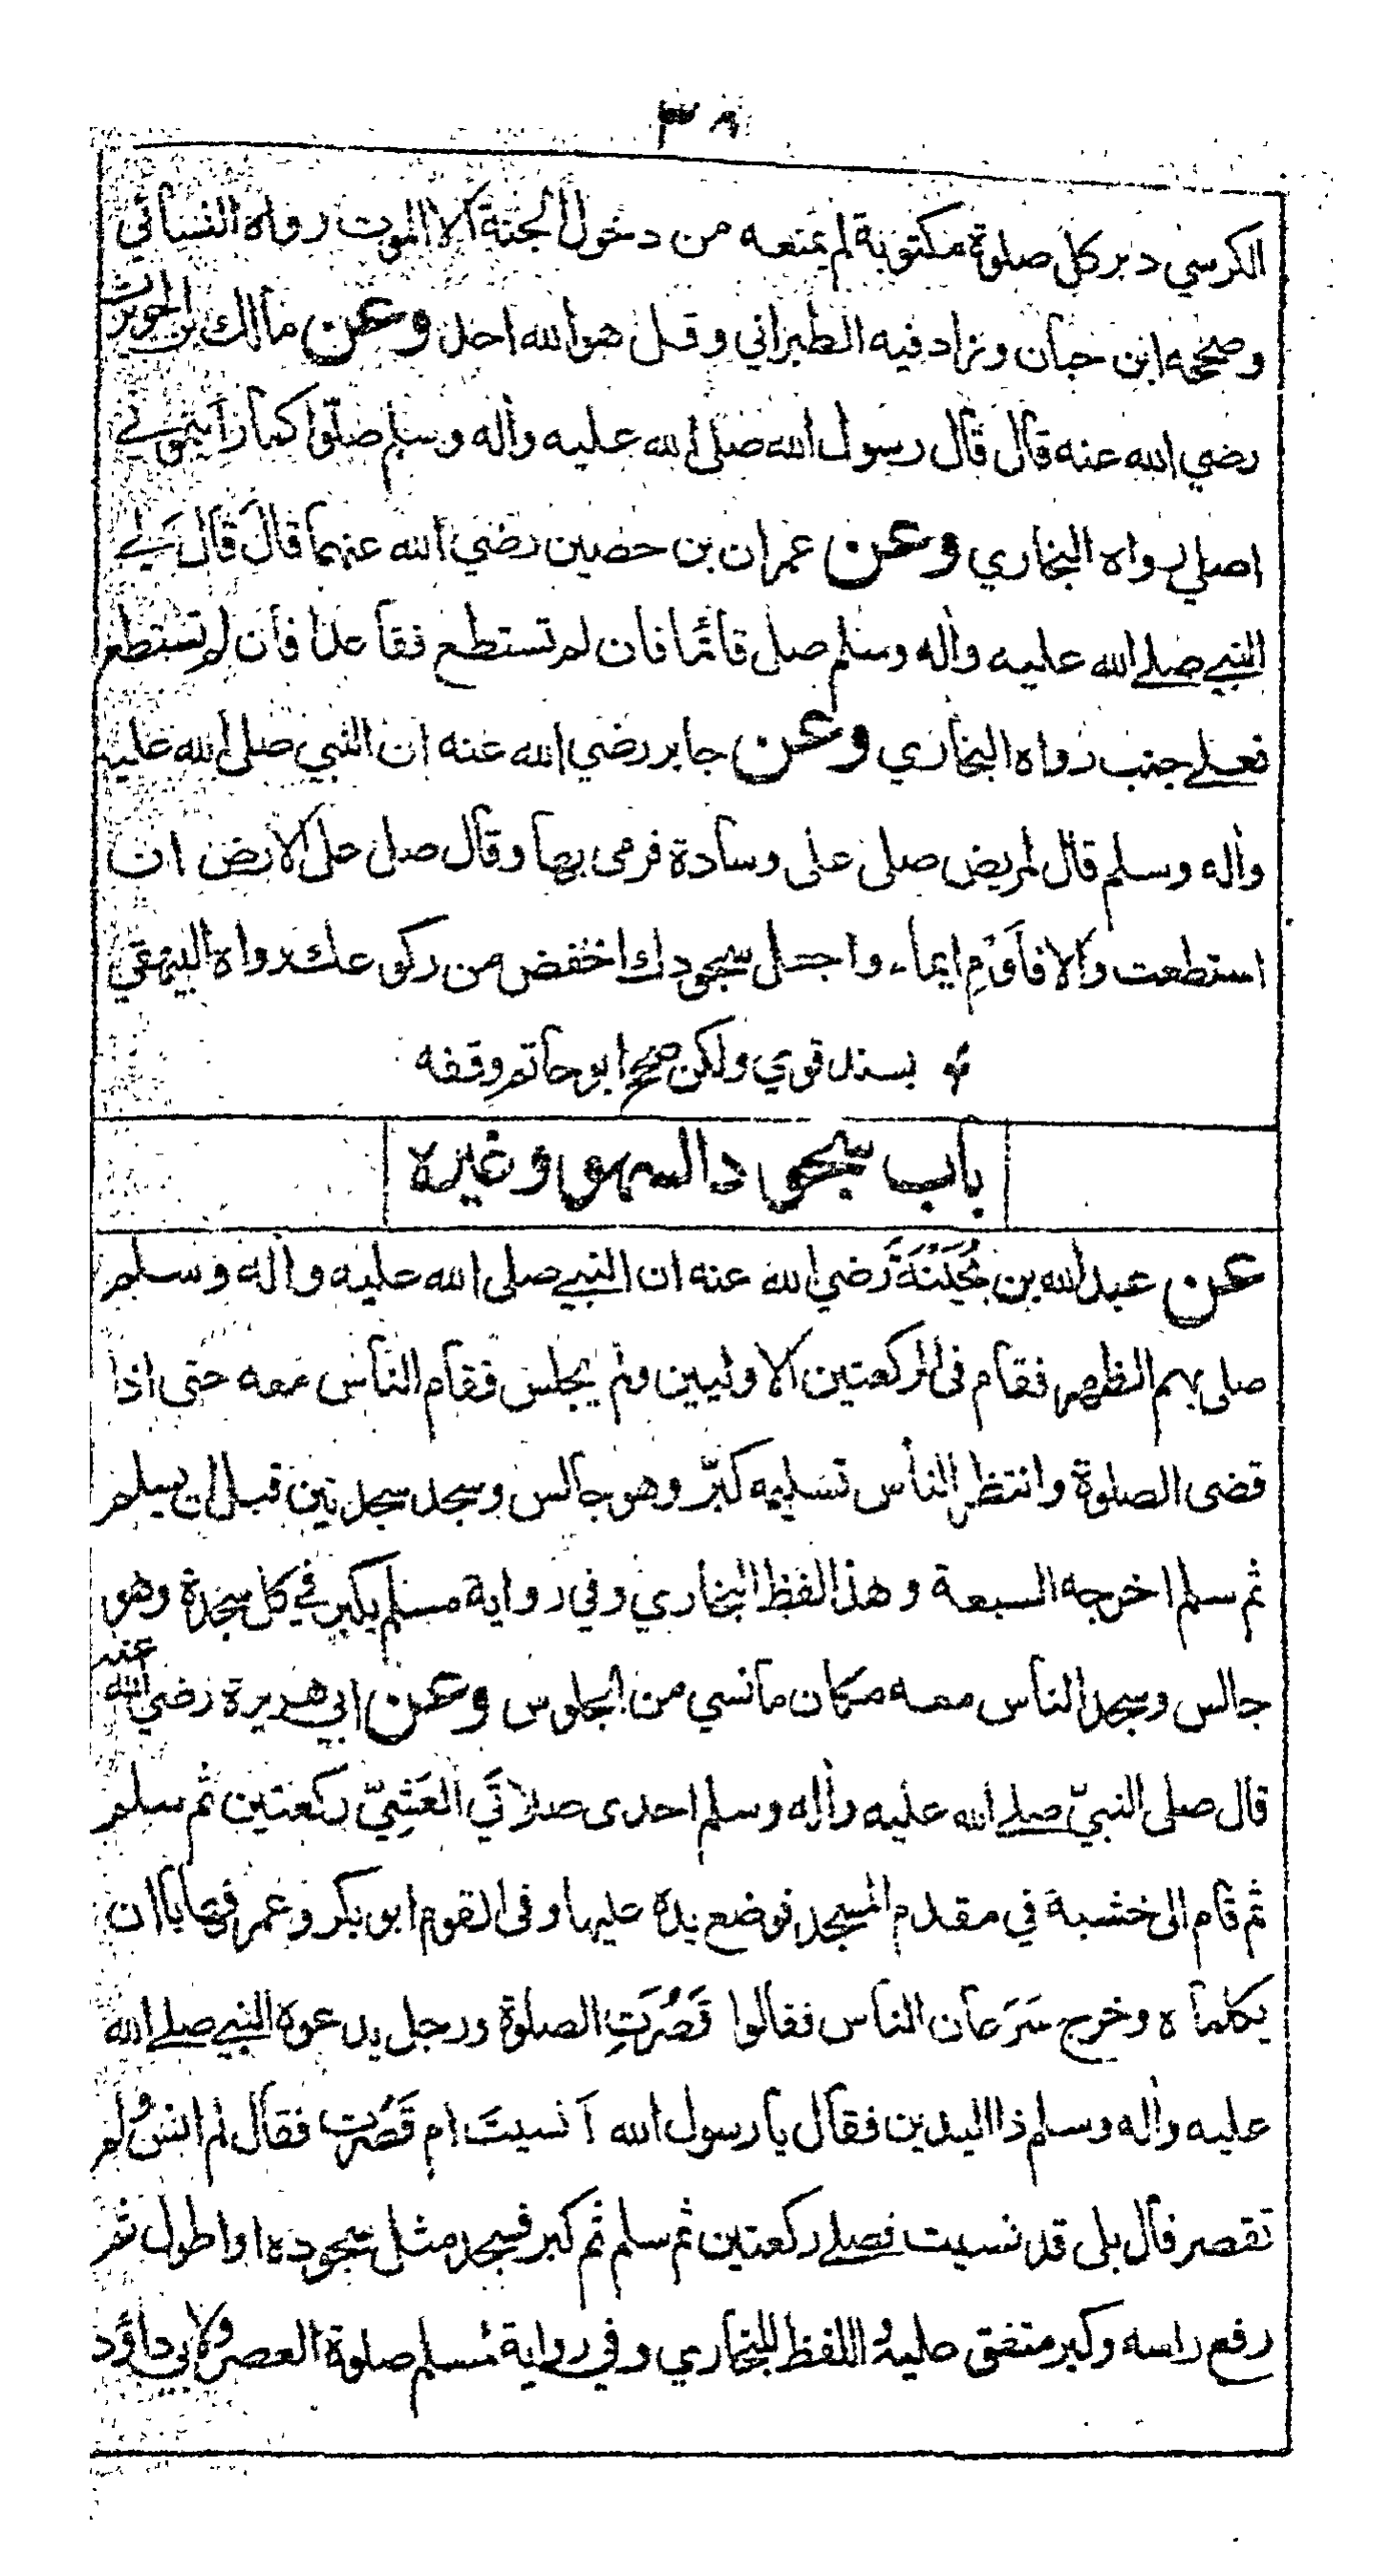 ٣٨
الكرسي دبر كل صلوة مكتوبة لم يمنعه من دخول الجنة الا الموت رواه النسائي
وصححه ابن حبان وزاد فيه الطبراني وقل هو الله احد وعن مالك بن الحويرث
رضي الله عنه قال قال رسول الله صلى الله عليه واٰله وسلم صلّوا كما رأيتموني
اصلي رواه البخاري وعن عمران بن حصين رضي الله عنهما قال قال لي
النبي صلى الله عليه واٰله وسلم صل قائما فان لم تستطع فقاعدا فان لم تستطع
فعلى جنب رواه البخاري وعن جابر رضي الله عنه ان النبي صلى الله عليه
واٰله وسلم قال لمريض صلى على وسادة فرمى بها وقال صل على الارض ان
استطعت والا فاَوْمِ ايماء واجعل سجودك اخفض من ركوعك رواه البيهقي
بسند قوي ولكن صحح ابو حاتم وقفه
باب سجود السهو وغيره
عن عبد الله بن بُحَيْنَةَ رضي الله عنه ان النبي صلى الله عليه واٰله وسلم
صلى بهم الظهر فقام في الركعتين الاوليين ولم يجلس فقام الناس معه حتى اذا
قضى الصلوة وانتظر الناس تسليمه كبّر وهو جالس وسجد سجدتين قبل ان يسلم
ثم سلم اخرجه السبعة وهذا لفظ البخاري وفي رواية مسلم يكبر في كل سجدة وهو
جالس وسجد الناس معه مكان ما نسي من الجلوس وعن ابي هريرة رضي الله عنه
قال صلى النبيّ صلى الله عليه واٰله وسلم احدى صلاتَي العَشِيّ ركعتين ثم سلم
ثم قام الى خشبة في مقدم المسجد فوضع يده عليها وفى القوم ابو بكر وعمر فهابا ان
يكلماه وخرج سَرَعان الناس فقالوا قَصُرَتِ الصلوة ورجل يدعوه النبي صلى الله
عليه واٰله وسلم ذا اليدين فقال يا رسول الله أنسيتَ ام قَصُرت فقال لم انس ولم
تقصر قال بلى قد نسيت فصلى ركعتين ثم سلم ثم كبر فسجد مثل سجوده او اطول ثم
رفع راسه وكبر متفق عليه واللفظ للبخاري وفي رواية مسلم صلوة العصر ولابي داؤد